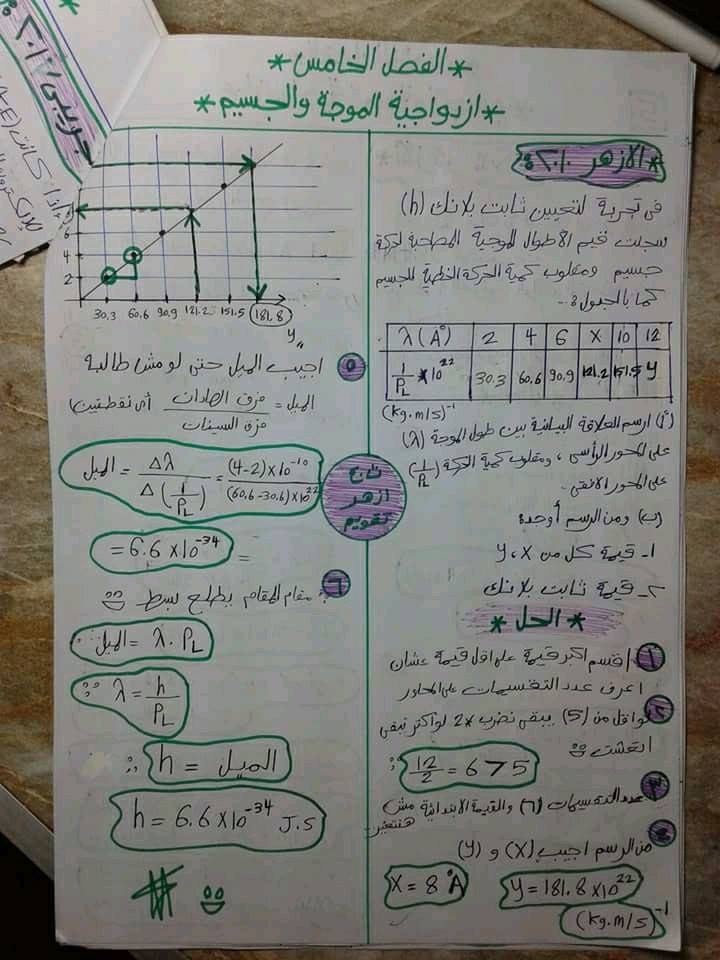 * الفصل الخامس *
* ازدواجية الموجة والجسيم *
* الازهر ٢٠١٠ :
فى تجربة لتعيين ثابت بلانك (h)
سجلت قيم الاطوال الموجية المصاحبة لحركة
جسيم ومقلوب كمية الحركة الخطية للجسيم
كما بالجدول :-
λ (A°) 2 4 6 X 10 12
1/PL *10²² 30.3 60.6 90.9 121.2 151.5 y
(kg.m/s)⁻¹
(أ) ارسم العلاقة البيانية بين طول الموجة (λ)
على المحور الرأسى ، ومقلوب كمية الحركة (1/PL)
على المحور الافقى .
(ب) ومن الرسم أوجد :
١- قيمة كل من y ، X
٢- قيمة ثابت بلانك
* الحل *
١ اقسم اكبر قيمة على اقل قيمة عشان
اعرف عدد التقسيمات على المحاور
٢ لو اقل من (5) يبقى نضرب 2* لو اكتر نبقى
12/2 = 6 > 5
٣ عدد التقسيمات (٦) والقيمة الابتدائية مش هتتغير
٤ من الرسم اجيب (X) و (y)
X = 8 A° y = 181.8 x10²²
(kg.m/s)⁻¹
8
6
4
2
30.3 60.6 90.9 121.2 151.5 181.8
y
٥ اجيب الميل حتى لو مش طالبه
الميل = فرق الصادات / فرق السينات أى نقطتين
الميل = Δλ / Δ(1/PL) = (4-2)x10⁻¹⁰ / (60.6-30.6)x10²²
= = 6.6 x10⁻³⁴
تابع
ازهر
تقويم
٦ مقام المقام يطلع بسط
الميل = λ . PL
∵ λ = h/PL
∴ h = الميل
h = 6.6 x10⁻³⁴ J.S